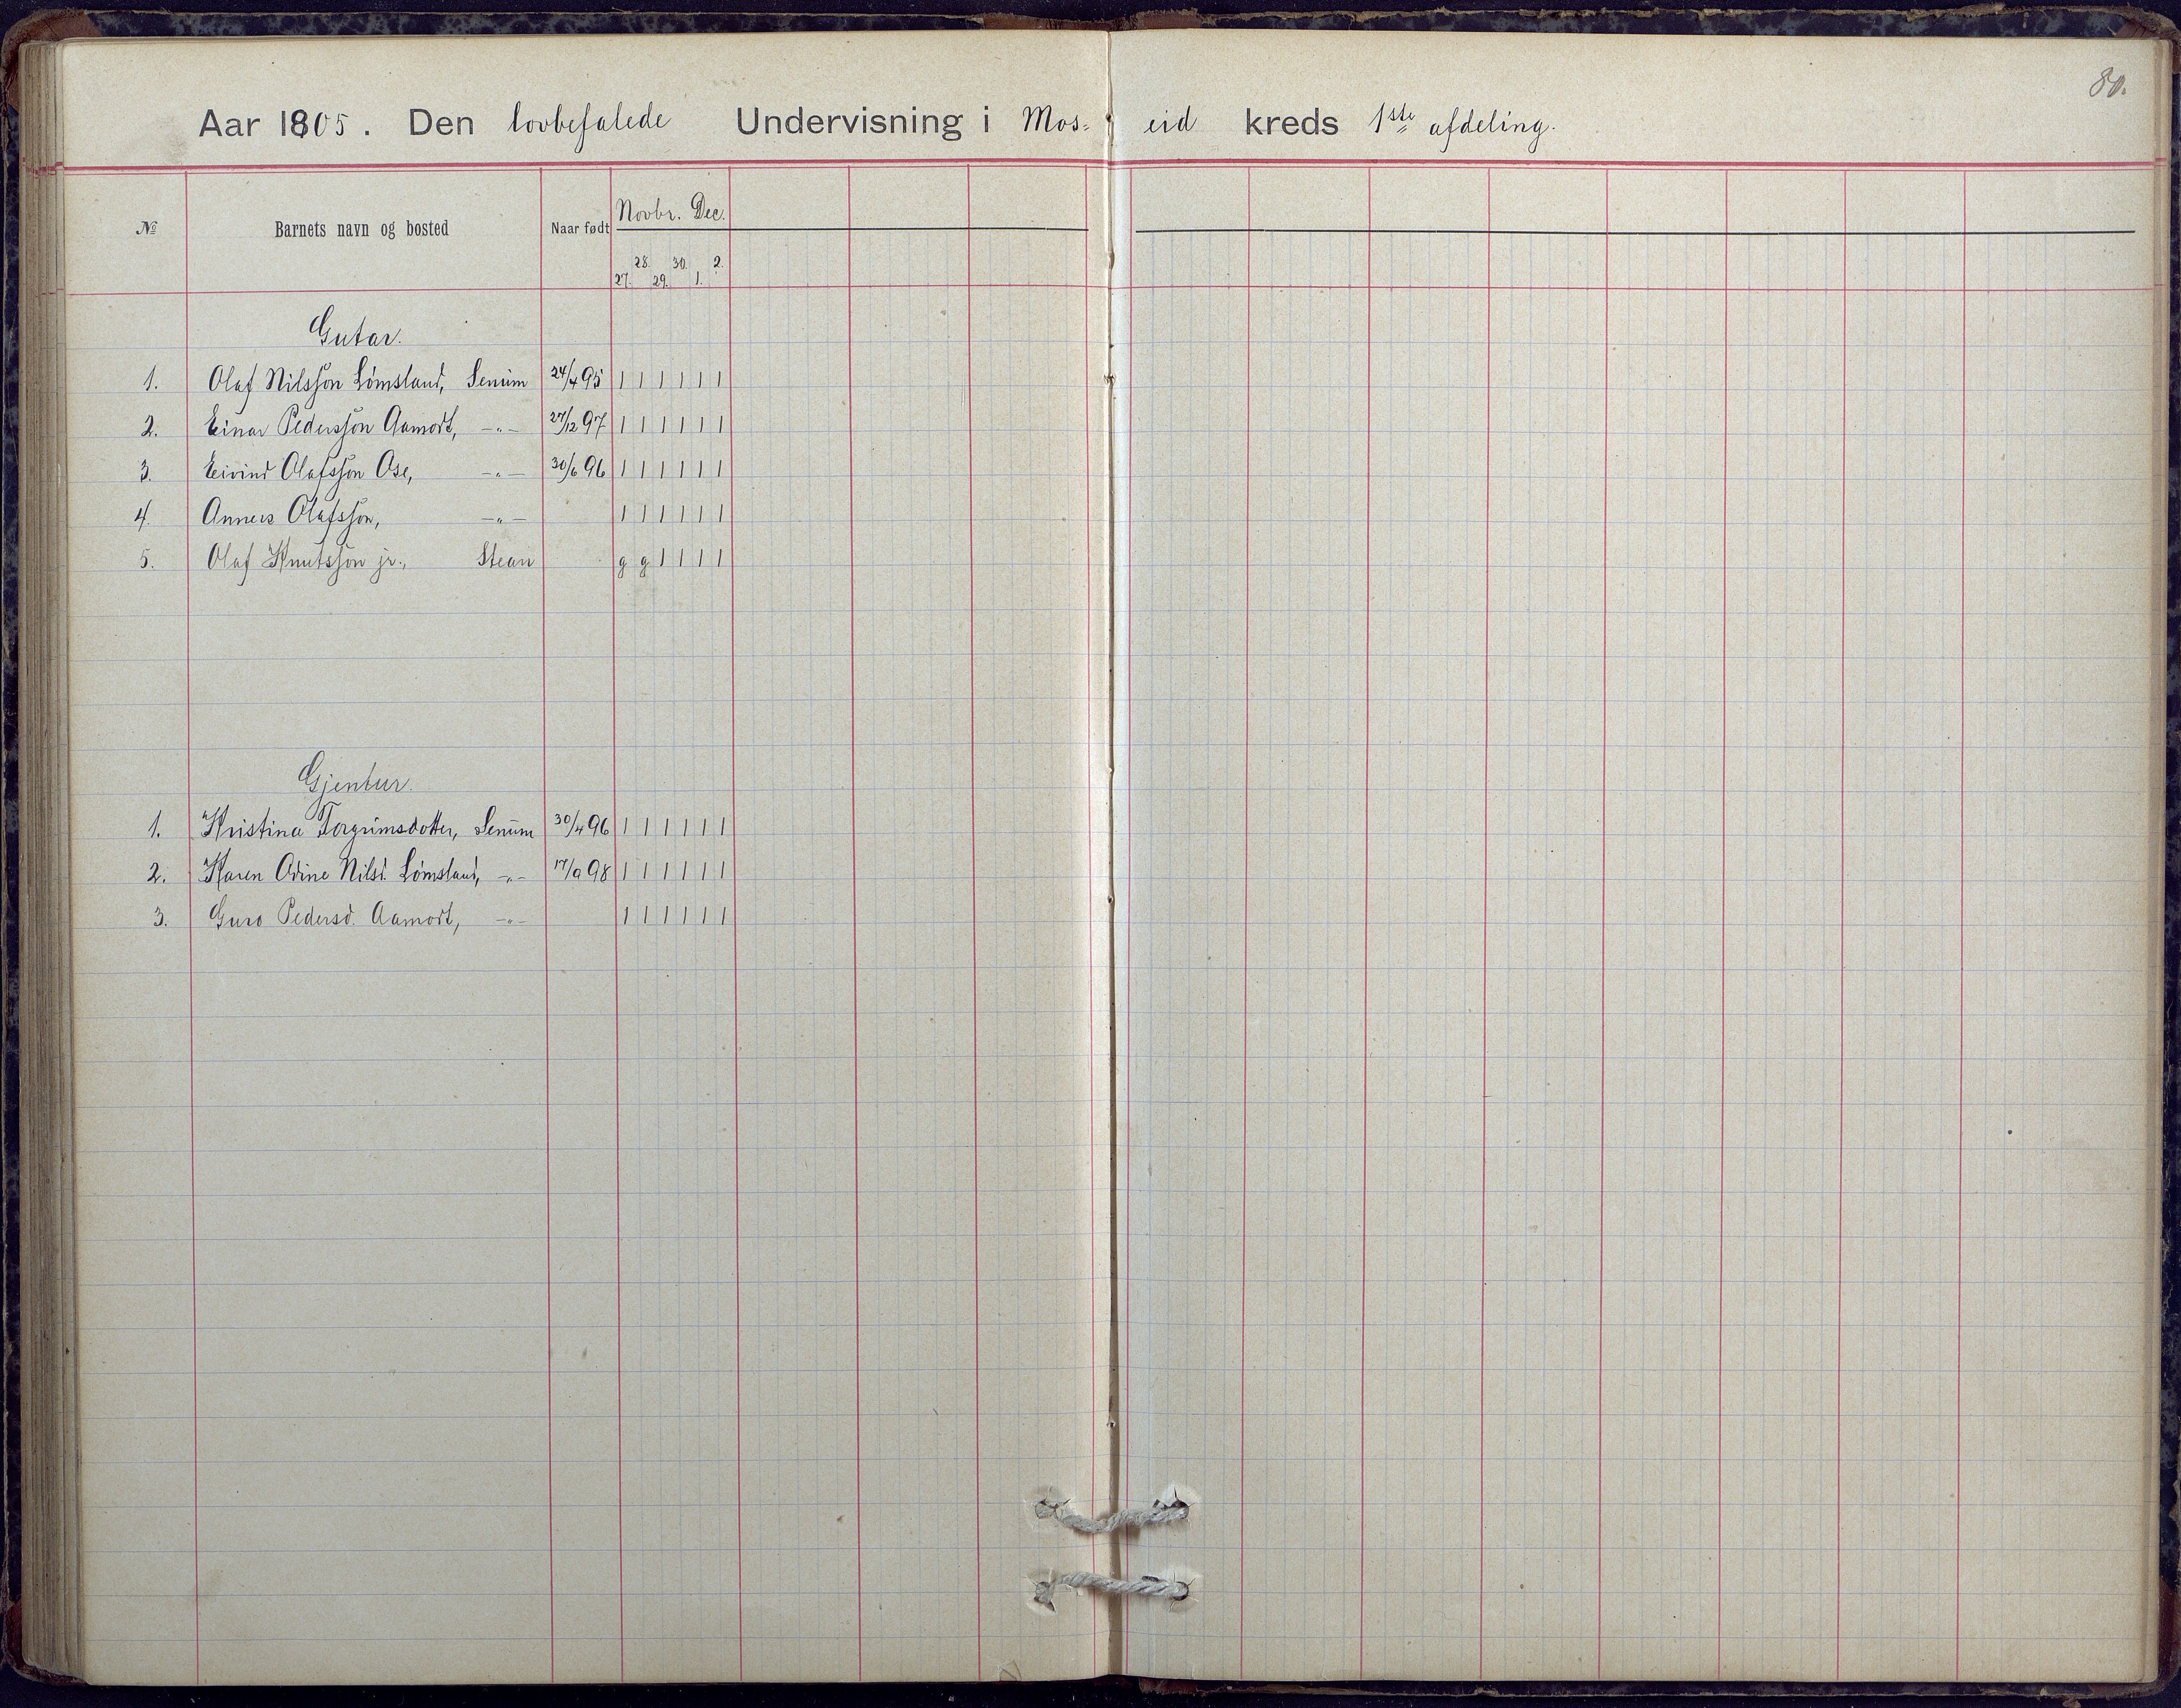 80.
Aar 1905. Den lovbefalede Undervisning i Mos-eid kreds 1ste afdeling.
№ Barnets navn og bosted Naar født Novbr. Dec.
27. 28. 29. 30. 1. 2.
Gutar.
1. Olaf Nilsson Lømsland, Senum 24/4 95 1 1 1 1 1 1
2. Einar Pedersson Aamodt, -"- 27/12 97 1 1 1 1 1 1
3. Eivind Olafsson Ose, -"- 30/6 96 1 1 1 1 1 1
4. Anners Olafsson, -"- 1 1 1 1 1 1
5. Olaf Knutsson jr., Stean g g 1 1 1 1
Gjentur.
1. Kristina Torgrimsdotter, Senum 30/4 96 1 1 1 1 1 1
2. Karen Odine Nilsd. Lømsland, -"- 17/9 98 1 1 1 1 1 1
3. Guro Pedersd. Aamodt, -"- 1 1 1 1 1 1